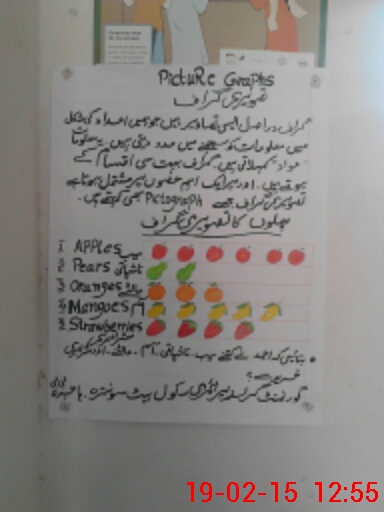 Picture Graphs
تصویری گراف
گراف دراصل ایسی تصاویر ہیں جو ہمیں اعداد کی شکل
میں معلومات کو سمجھنے میں مدد دیتی ہیں۔ یہ معلومات
مواد کہلاتی ہیں۔ گراف بہت سی اقسام کے
ہوتے ہیں۔ اور ہر ایک اہم حصوں پر مشتمل ہوتا ہے
تصویری گراف جسے Pictograph بھی کہتے ہیں۔
پھلوں کا تصویری گراف
1 APPles سیب
2 Pears ناشپاتی
3 Oranges مالٹے
4 Mangoes آم
5 Strawberries
سٹرابیری
• بتائیں کہ احمد نے کتنے سیب، ناشپاتی، آم، مالٹے، اور سٹرابیری
خریدے؟
گورنمنٹ گرلز پرائمری سکول
19-02-15 12:55